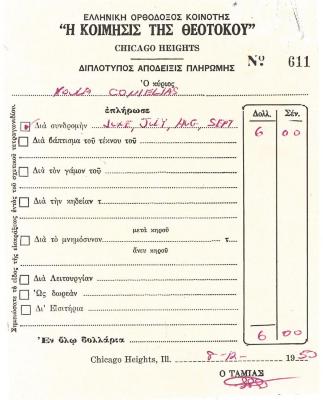 ΕΛΛΗΝΙΚΗ ΟΡΘΟΔΟΞΟΣ ΚΟΙΝΟΤΗΣ
"Η ΚΟΙΜΗΣΙΣ ΤΗΣ ΘΕΟΤΟΚΟΥ"
CHICAGO HEIGHTS
ΔΙΠΛΟΤΥΠΟΣ ΑΠΟΔΕΙΞΙΣ ΠΛΗΡΩΜΗΣ
Nº 611
Ὁ κύριος
ἐπλήρωσε
Δολλ. Σέν.
Διὰ συνδρομὴν JUNE, JULY, AUG, SEPT 6 00
Διὰ βάπτισμα τοῦ τέκνου τοῦ
Διὰ τὸν γάμον τοῦ
Διὰ τὴν κηδείαν τ
μετὰ κηροῦ
Διὰ τὸ μνημόσυνον τ.
ἄνευ κηροῦ
Διὰ Λειτουργίαν
Ὡς δωρεὰν
Δι' Εἰσιτήρια
Ἐν ὅλῳ δολλάρια 6 00
Chicago Heights, Ill. 1950
Ο ΤΑΜΙΑΣ